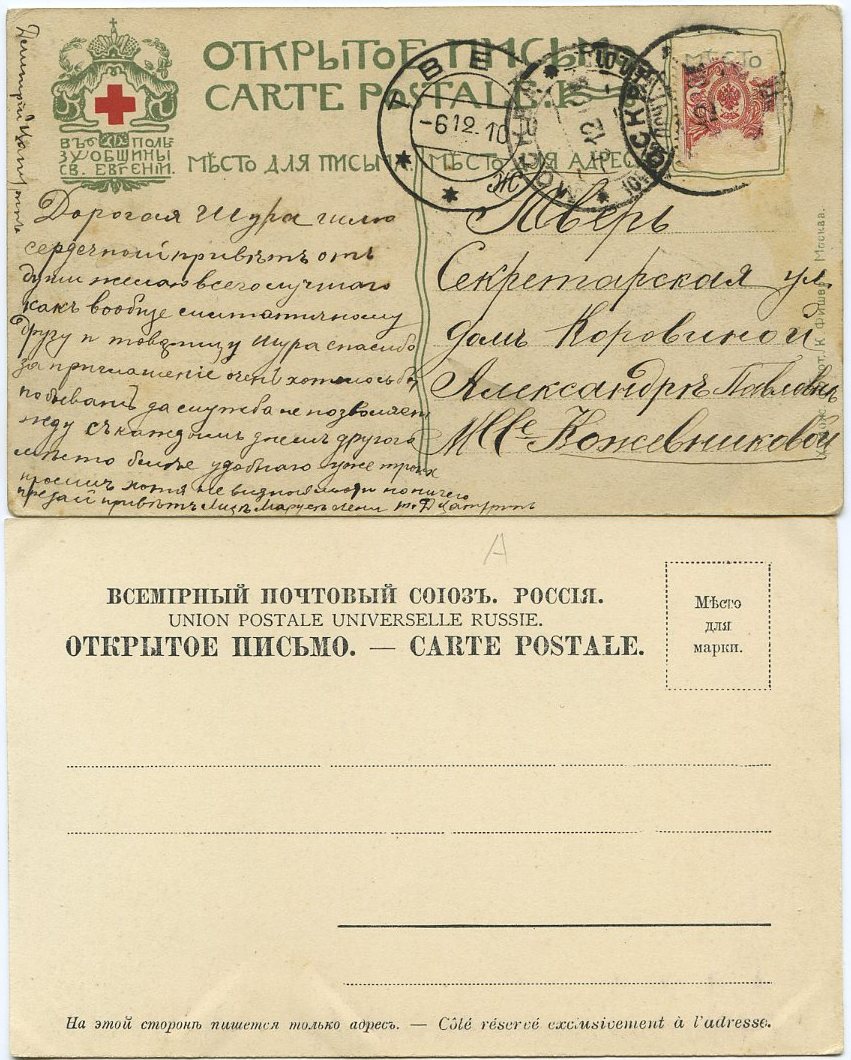 ОТКРЫТОЕ ПИСЬМО
CARTE POSTALE
ВЪ ПОЛЬ-
ЗУ ОБЩИНЫ
СВ. ЕВГЕНIИ.
МѢСТО ДЛЯ ПИСЬМА.
МѢСТО ДЛЯ АДРЕСА
МѢСТО
ТВЕ
-6 12. 10
МОСКВА
Дорогая Шура шлю
сердечный привѣтъ отъ
души желаю всего лучшаго
какъ вообще симпатичному
Другу и
Шура спасибо
за приглашенiе очень хотелось бы
побывать да служба не позволяет
жду съ каждымъ днемъ другого
мѣсто болѣе удобнаго уже
привѣтъ
Тверь
Секретарская ул.
домъ Коровиной
Александрѣ Павловнѣ
Mlle Кожевниковой
К. Фишеръ, Москва.
A
ВСЕМIРНЫЙ ПОЧТОВЫЙ СОЮЗЪ. РОССIЯ.
UNION POSTALE UNIVERSELLE RUSSIE.
ОТКРЫТОЕ ПИСЬМО. — CARTE POSTALE.
Мѣсто
для
марки.
На этой сторонѣ пишется только адресъ. — Côté réservé exclusivement à l'adresse.